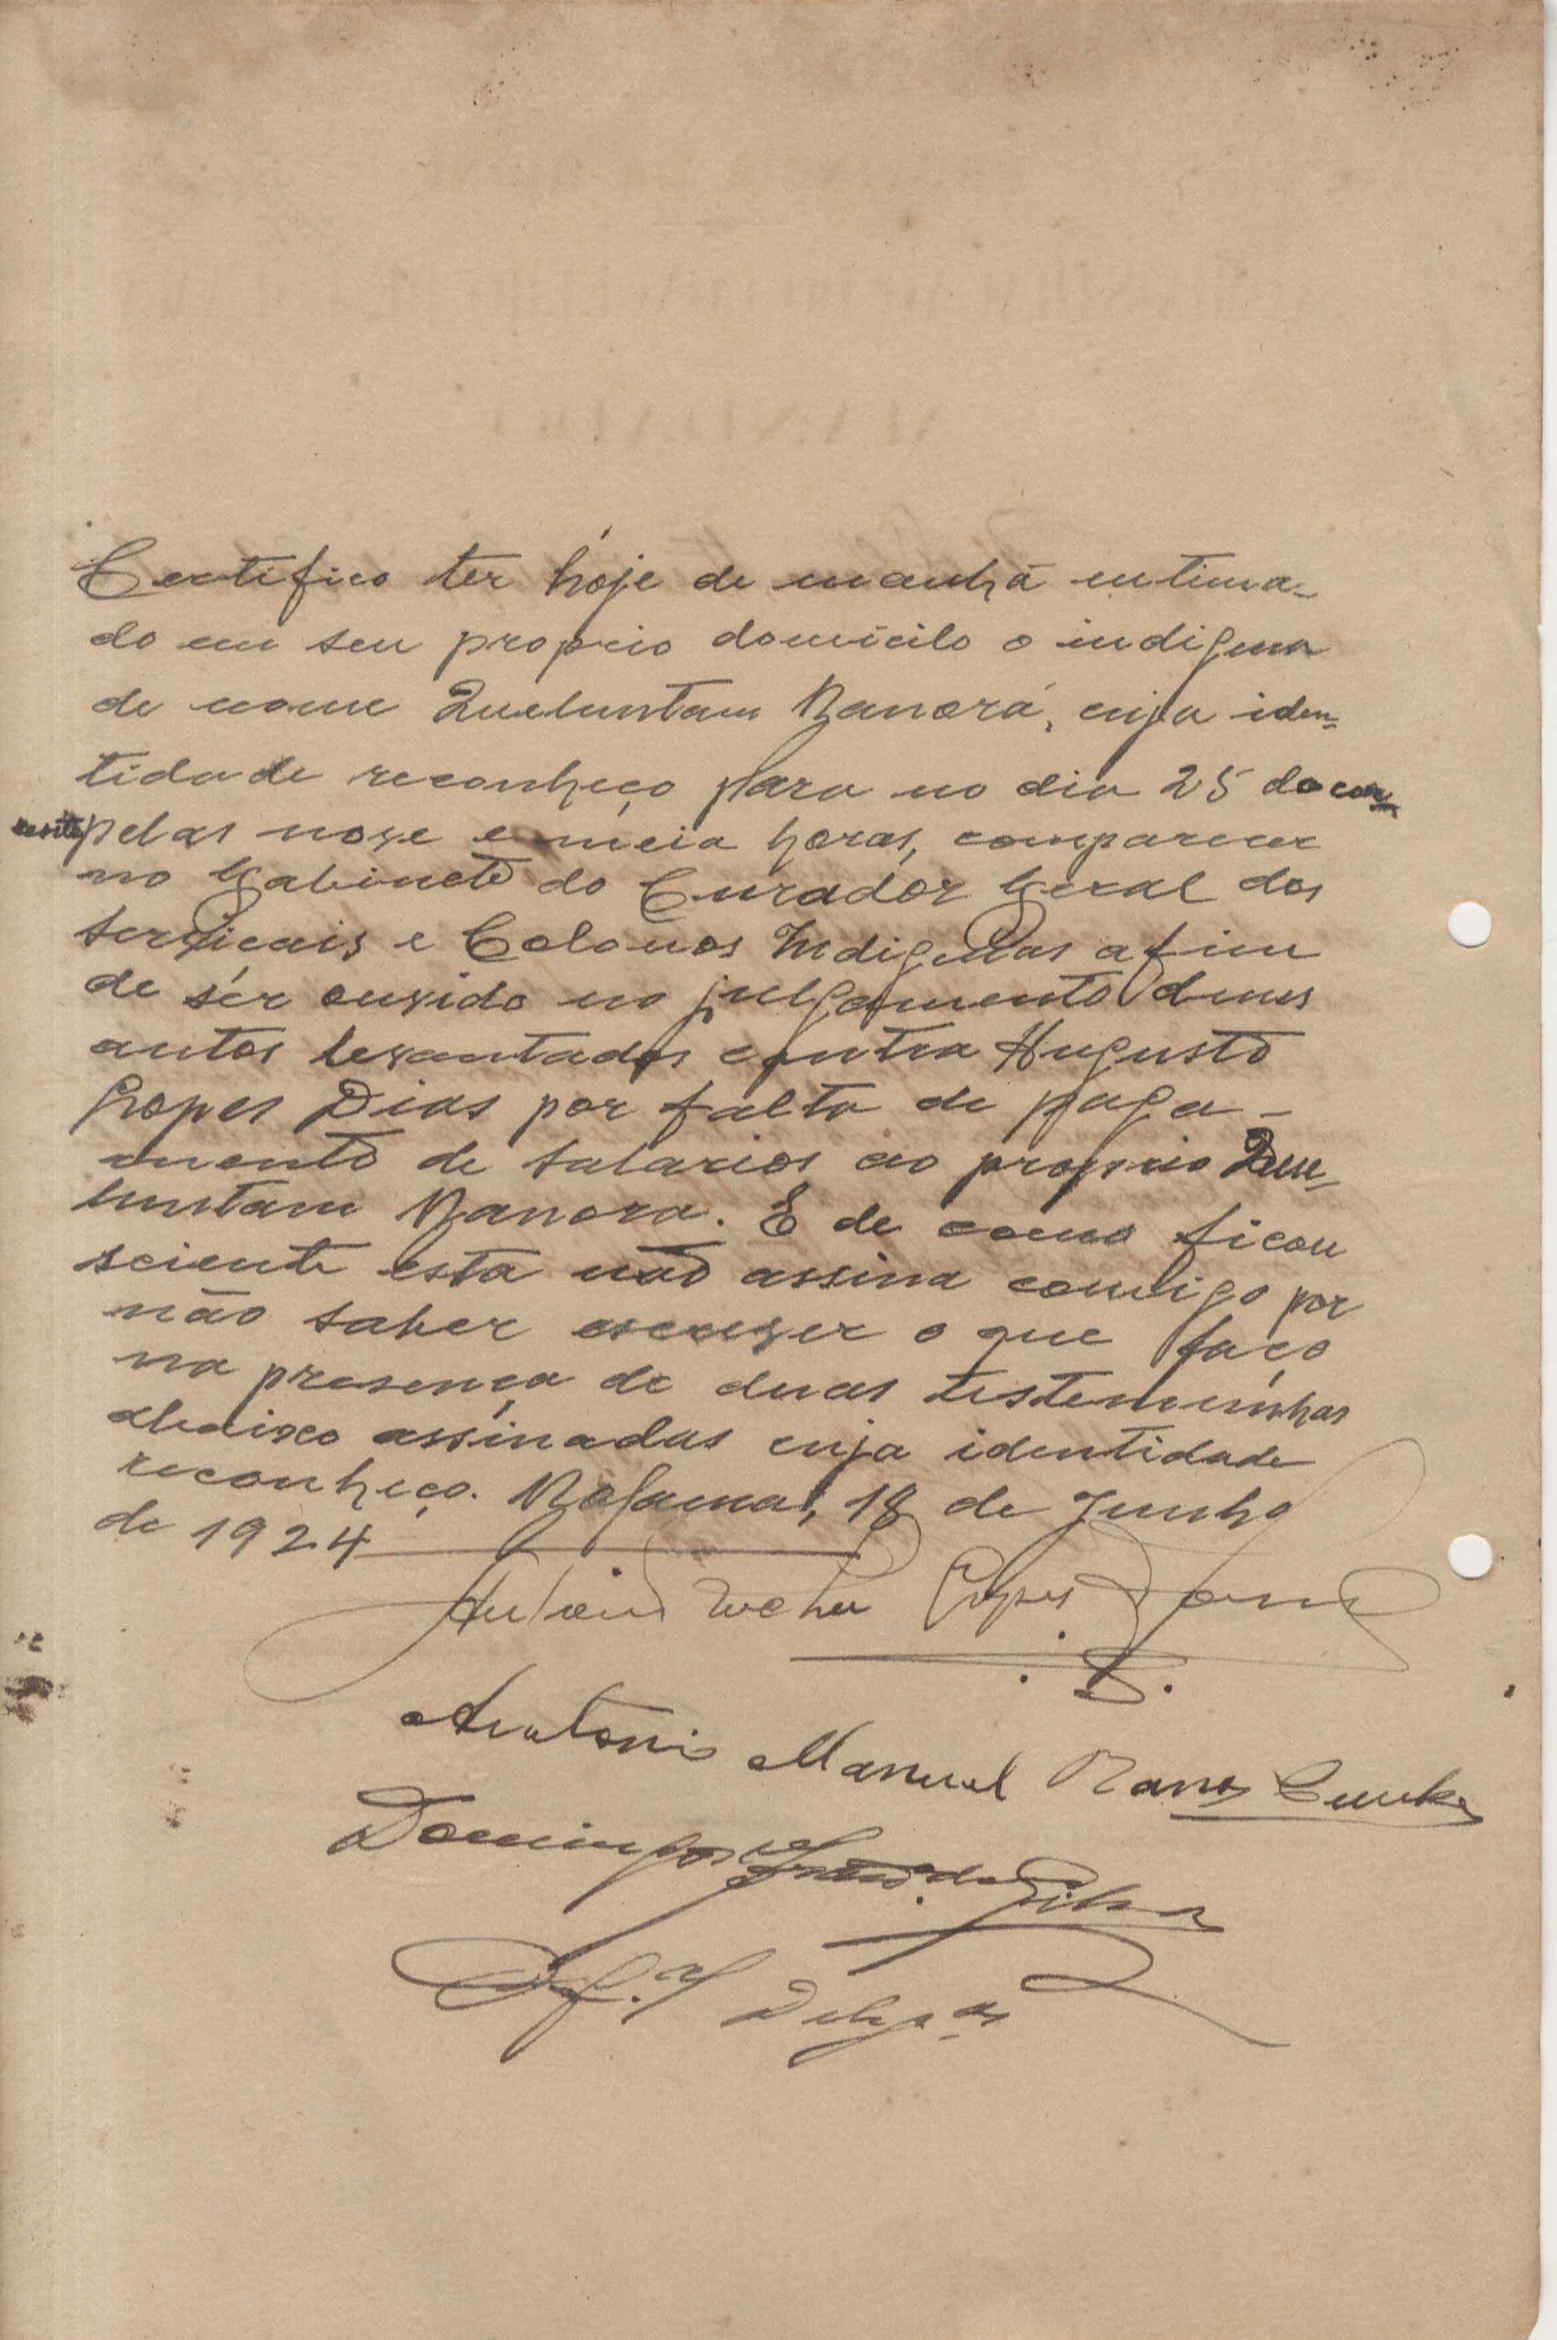 Certifico ter hoje de manhã intima-
do em seu proprio domicilo o indigena
de nome Queluntam Nanorá, cuja iden-
tidade reconheço para no dia 25 do cor-
rente pelas nove e meia horas, comparecer
no Gabinete do Curador Geral dos
serviçais e Colonos Indigenas afim
de sêr ouvido no julgamento duns
autos levantados contra Augusto
Lopes Dias por falta de paga-
mento de salarios ao proprio Que-
luntam Nanora. E de como ficou
sciente esta não assina comigo por
não saber escrever o que faço
na presença de duas testemunhas
abaixo assinadas cuja identidade
reconheço. Bolama, 18 de Junho
de 1924
Antonio Lopes
Antonio Manuel
Domingos da Silva